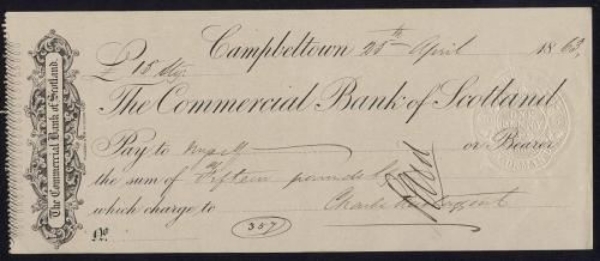 The Commercial Bank of Scotland.
Campbeltown 25th April 1863,
£ 15 Stg.
The Commercial Bank of Scotland
Pay to myself or Bearer
the sum of Fifteen pounds
which charge to Charles
357
No.